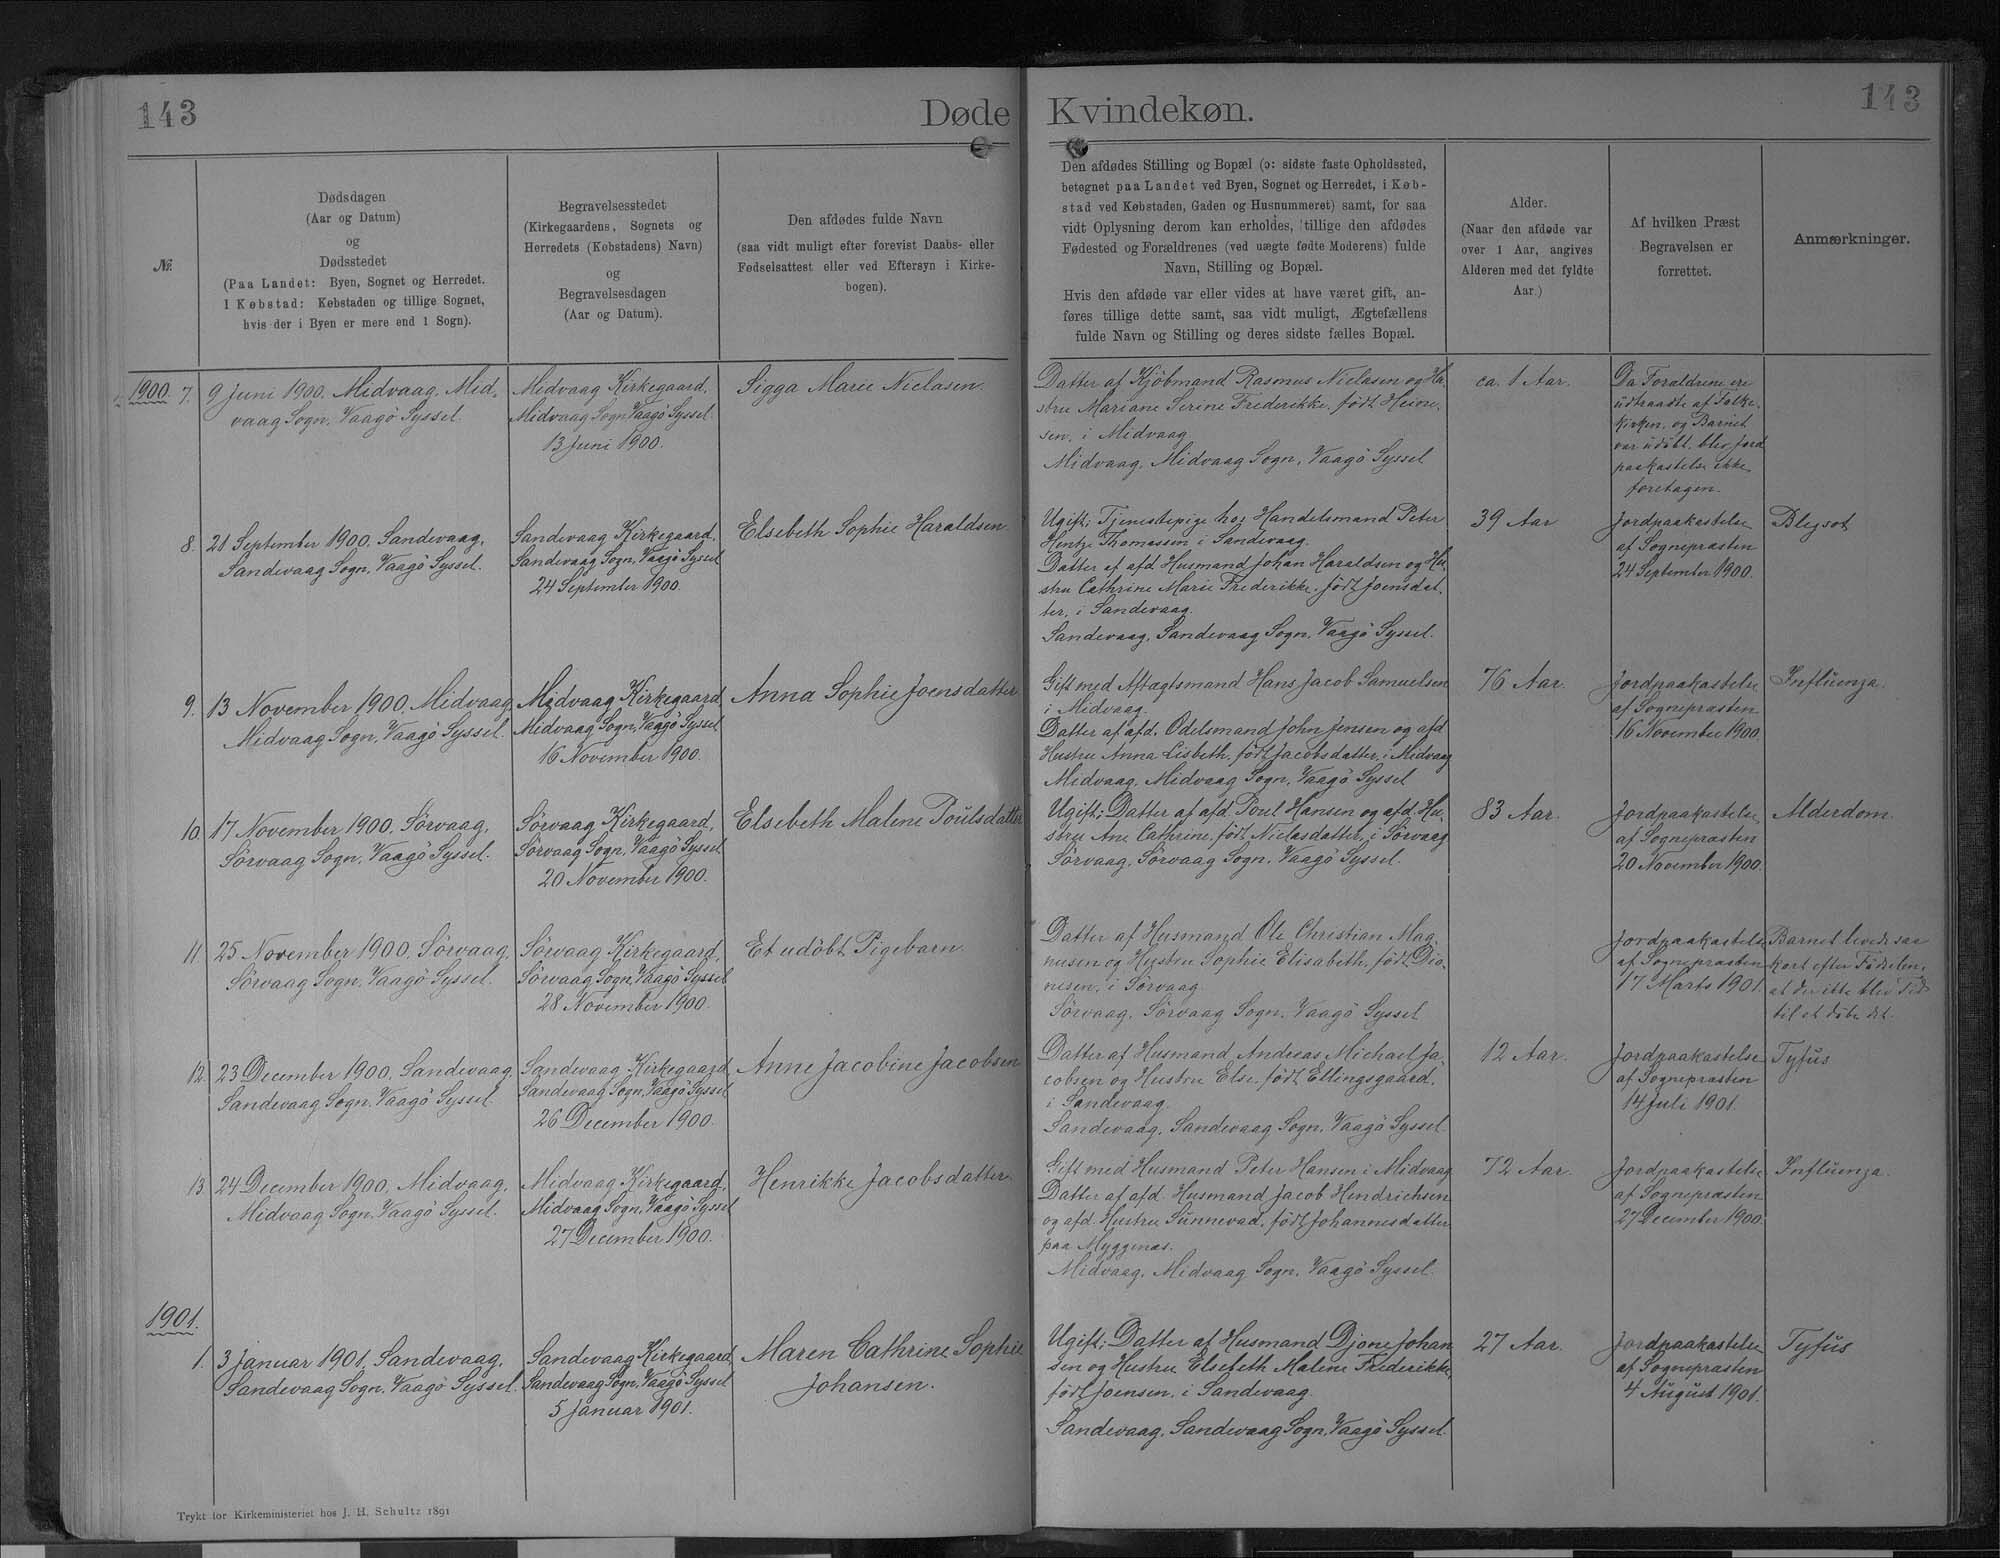 143
Døde
Kvindekøn.
143
No.
Dødsdagen
(Aar og Datum)
og
Dødsstedet
(Paa Landet: Byen, Sognet og Herredet.
I Købstad: Købstaden og tillige Sognet,
hvis der i Byen er mere end 1 Sogn).
Begravelsesstedet
(Kirkegaardens, Sognets og
Herredets (Købstadens) Navn)
og
Begravelsesdagen
(Aar og Datum).
Den afdødes fulde Navn
(saa vidt muligt efter forevist Daabs- eller
Fødselsattest eller ved Eftersyn i Kirke-
bogen).
Den afdødes Stilling og Bopæl (ɔ: sidste faste Opholdssted,
betegnet paa Landet ved Byen, Sognet og Herredet, i Køb-
stad ved Købstaden, Gaden og Husnummeret) samt, for saa
vidt Oplysning derom kan erholdes, tillige den afdødes
Fødested og Forældrenes (ved uægte fødte Moderens) fulde
Navn, Stilling og Bopæl.
Hvis den afdøde var eller vides at have været gift, an-
føres tillige dette samt, saa vidt muligt, Ægtefællens
fulde Navn og Stilling og deres sidste fælles Bopæl.
Alder.
(Naar den afdøde var
over 1 Aar, angives
Alderen med det fyldte
Aar.)
Af hvilken Præst
Begravelsen er
forrettet.
Anmærkninger.
1900. 7.
9 Juni 1900. Midvaag, Mid-
vaag Sogn, Vaagö Syssel.
Midvaag Kirkegaard,
Midvaag Sogn, Vaagö Syssel
13 Juni 1900.
Sigga Marie Niclasen.
Datter af Kjöbmand Rasmus Niclasen og Hu-
stru Mariane Serine Frederikke, født Heine-
sen, i Midvaag
Midvaag, Midvaag Sogn, Vaagö Syssel
ca. 1 Aar.
Da Forældrene ere
udtraadte af Folke-
kirken, og Barnet
var udöbt, blev Jord
paakastelse ikke
foretagen.
8.
21 September 1900. Sandevaag,
Sandevaag Sogn, Vaagö Syssel.
Sandevaag Kirkegaard,
Sandevaag Sogn, Vaagö Syssel
24 September 1900.
Elsebeth Sophie Haraldsen
Ugift; Tjenestepige hos Handelsmand Peter
Hentze Thomassen i Sandevaag.
Datter af afd. Husmand Johan Haraldsen og Hu-
stru Cathrine Marie Frederikke, født Joensdat-
ter, i Sandevaag.
Sandevaag, Sandevaag Sogn, Vaagö Syssel.
39 Aar
Jordpaakastelse
af Sognepræsten
24 September 1900.
Blegsot
9.
13 November 1900, Midvaag,
Midvaag Sogn, Vaagö Syssel.
Midvaag Kirkegaard,
Midvaag Sogn, Vaagö Syssel
16 November 1900.
Anna Sophie Joensdatter
Gift med Aftægtsmand Hans Jacob Samuelsen
i Midvaag.
Datter af afd. Odelsmand John Jensen og afd
Hustru Anna Lisbeth, født Jacobsdatter, i Midvaag
Midvaag, Midvaag Sogn, Vaagö Syssel
76 Aar.
Jordpaakastelse
af Sognepræsten
16 November 1900.
Influenza.
10.
17 November 1900. Sörvaag,
Sörvaag Sogn, Vaagö Syssel.
Sörvaag Kirkegaard,
Sörvaag Sogn, Vaagö Syssel
20 November 1900.
Elsebeth Malene Poulsdatter
Ugift; Datter af afd. Poul Hansen og afd. Hu-
stru Ane Cathrine, født Niclasdatter, i Sörvaag
Sörvaag, Sörvaag Sogn, Vaagö Syssel.
83 Aar.
Jordpaakastelse
af Sognepræsten
20 November 1900.
Alderdom.
11
25 November 1900, Sörvaag,
Sörvaag Sogn, Vaagö Syssel.
Sörvaag Kirkegaard,
Sörvaag Sogn, Vaagö Syssel
28 November 1900.
Et udöbt Pigebarn.
Datter af Husmand Ole Christian Mag-
nusen og Hustru Sophie Elisabeth, født Dio-
nesen, i Sörvaag.
Sörvaag, Sörvaag Sogn, Vaagö Syssel
Jordpaakastelse
af Sognepræsten
17 Marts 1901.
Barnet levede saa
kort efter Fødselen,
at der ikke blev Tid
til at döbe det.
12.
23 December 1900, Sandevaag,
Sandevaag Sogn, Vaagö Syssel
Sandevaag Kirkegaard,
Sandevaag Sogn, Vaagö Syssel
26 December 1900.
Anne Jacobine Jacobsen
Datter af Husmand Andreas Michael Ja-
cobsen og Hustru Else, født Ellingsgaard,
i Sandevaag.
Sandevaag, Sandevaag Sogn, Vaagö Syssel
12 Aar.
Jordpaakastelse
af Sognepræsten
14 Juli 1901.
Tyfus
13.
24 December 1900, Midvaag,
Midvaag Sogn, Vaagö Syssel.
Midvaag Kirkegaard,
Midvaag Sogn, Vaagö Syssel
27 December 1900.
Henrikke Jacobsdatter
Gift med Husmand Peter Hansen i Midvaag
Datter af afd. Husmand Jacob Hendrichsen
og afd. Hustru Sunnevad, født Johannesdatter
paa Myggenæs.
Midvaag, Midvaag Sogn, Vaagö Syssel.
72 Aar.
Jordpaakastelse
af Sognepræsten
27 December 1900.
Influenza.
1901.
1.
3 Januar 1901, Sandevaag,
Sandevaag Sogn, Vaagö Syssel.
Sandevaag Kirkegaard,
Sandevaag Sogn, Vaagö Syssel
5 Januar 1901.
Maren Cathrine Sophie
Johansen.
Ugift; Datter af Husmand Djone Johan
sen og Hustru Elsebeth Malene Frederikke,
født Joensen, i Sandevaag.
Sandevaag, Sandevaag Sogn, Vaagö Syssel.
27 Aar.
Jordpaakastelse
af Sognepræsten
4 August 1901.
Tyfus
Trykt for Kirkeministeriet hos J. H. Schultz 1891